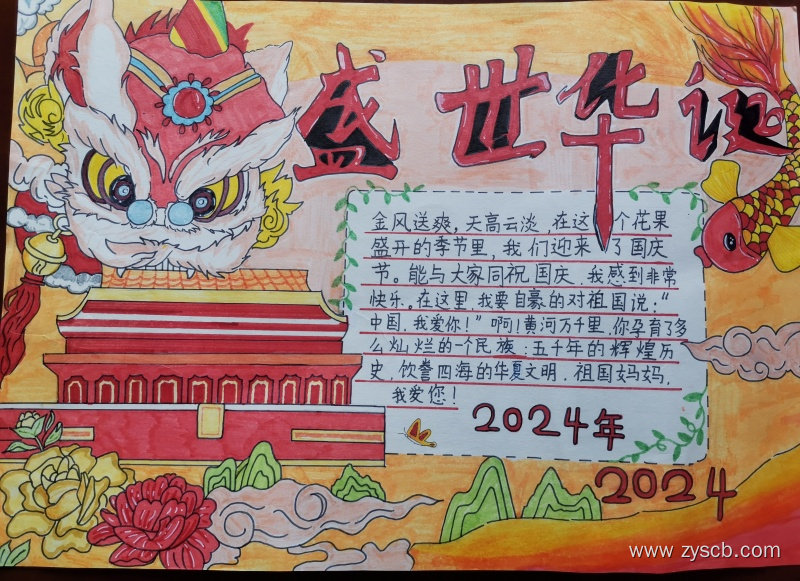 盛世华诞
金风送爽，天高云淡，在这个花果
盛开的季节里，我们迎来了国庆
节。能与大家同祝国庆，我感到非常
快乐。在这里，我要自豪的对祖国说：“
中国，我爱你！”啊！黄河万千里，你孕育了多
么灿烂的一个民族，五千年的辉煌历
史，饮誉四海的华夏文明，祖国妈妈，
我爱您！
2024年
2024
www.zyscb.com